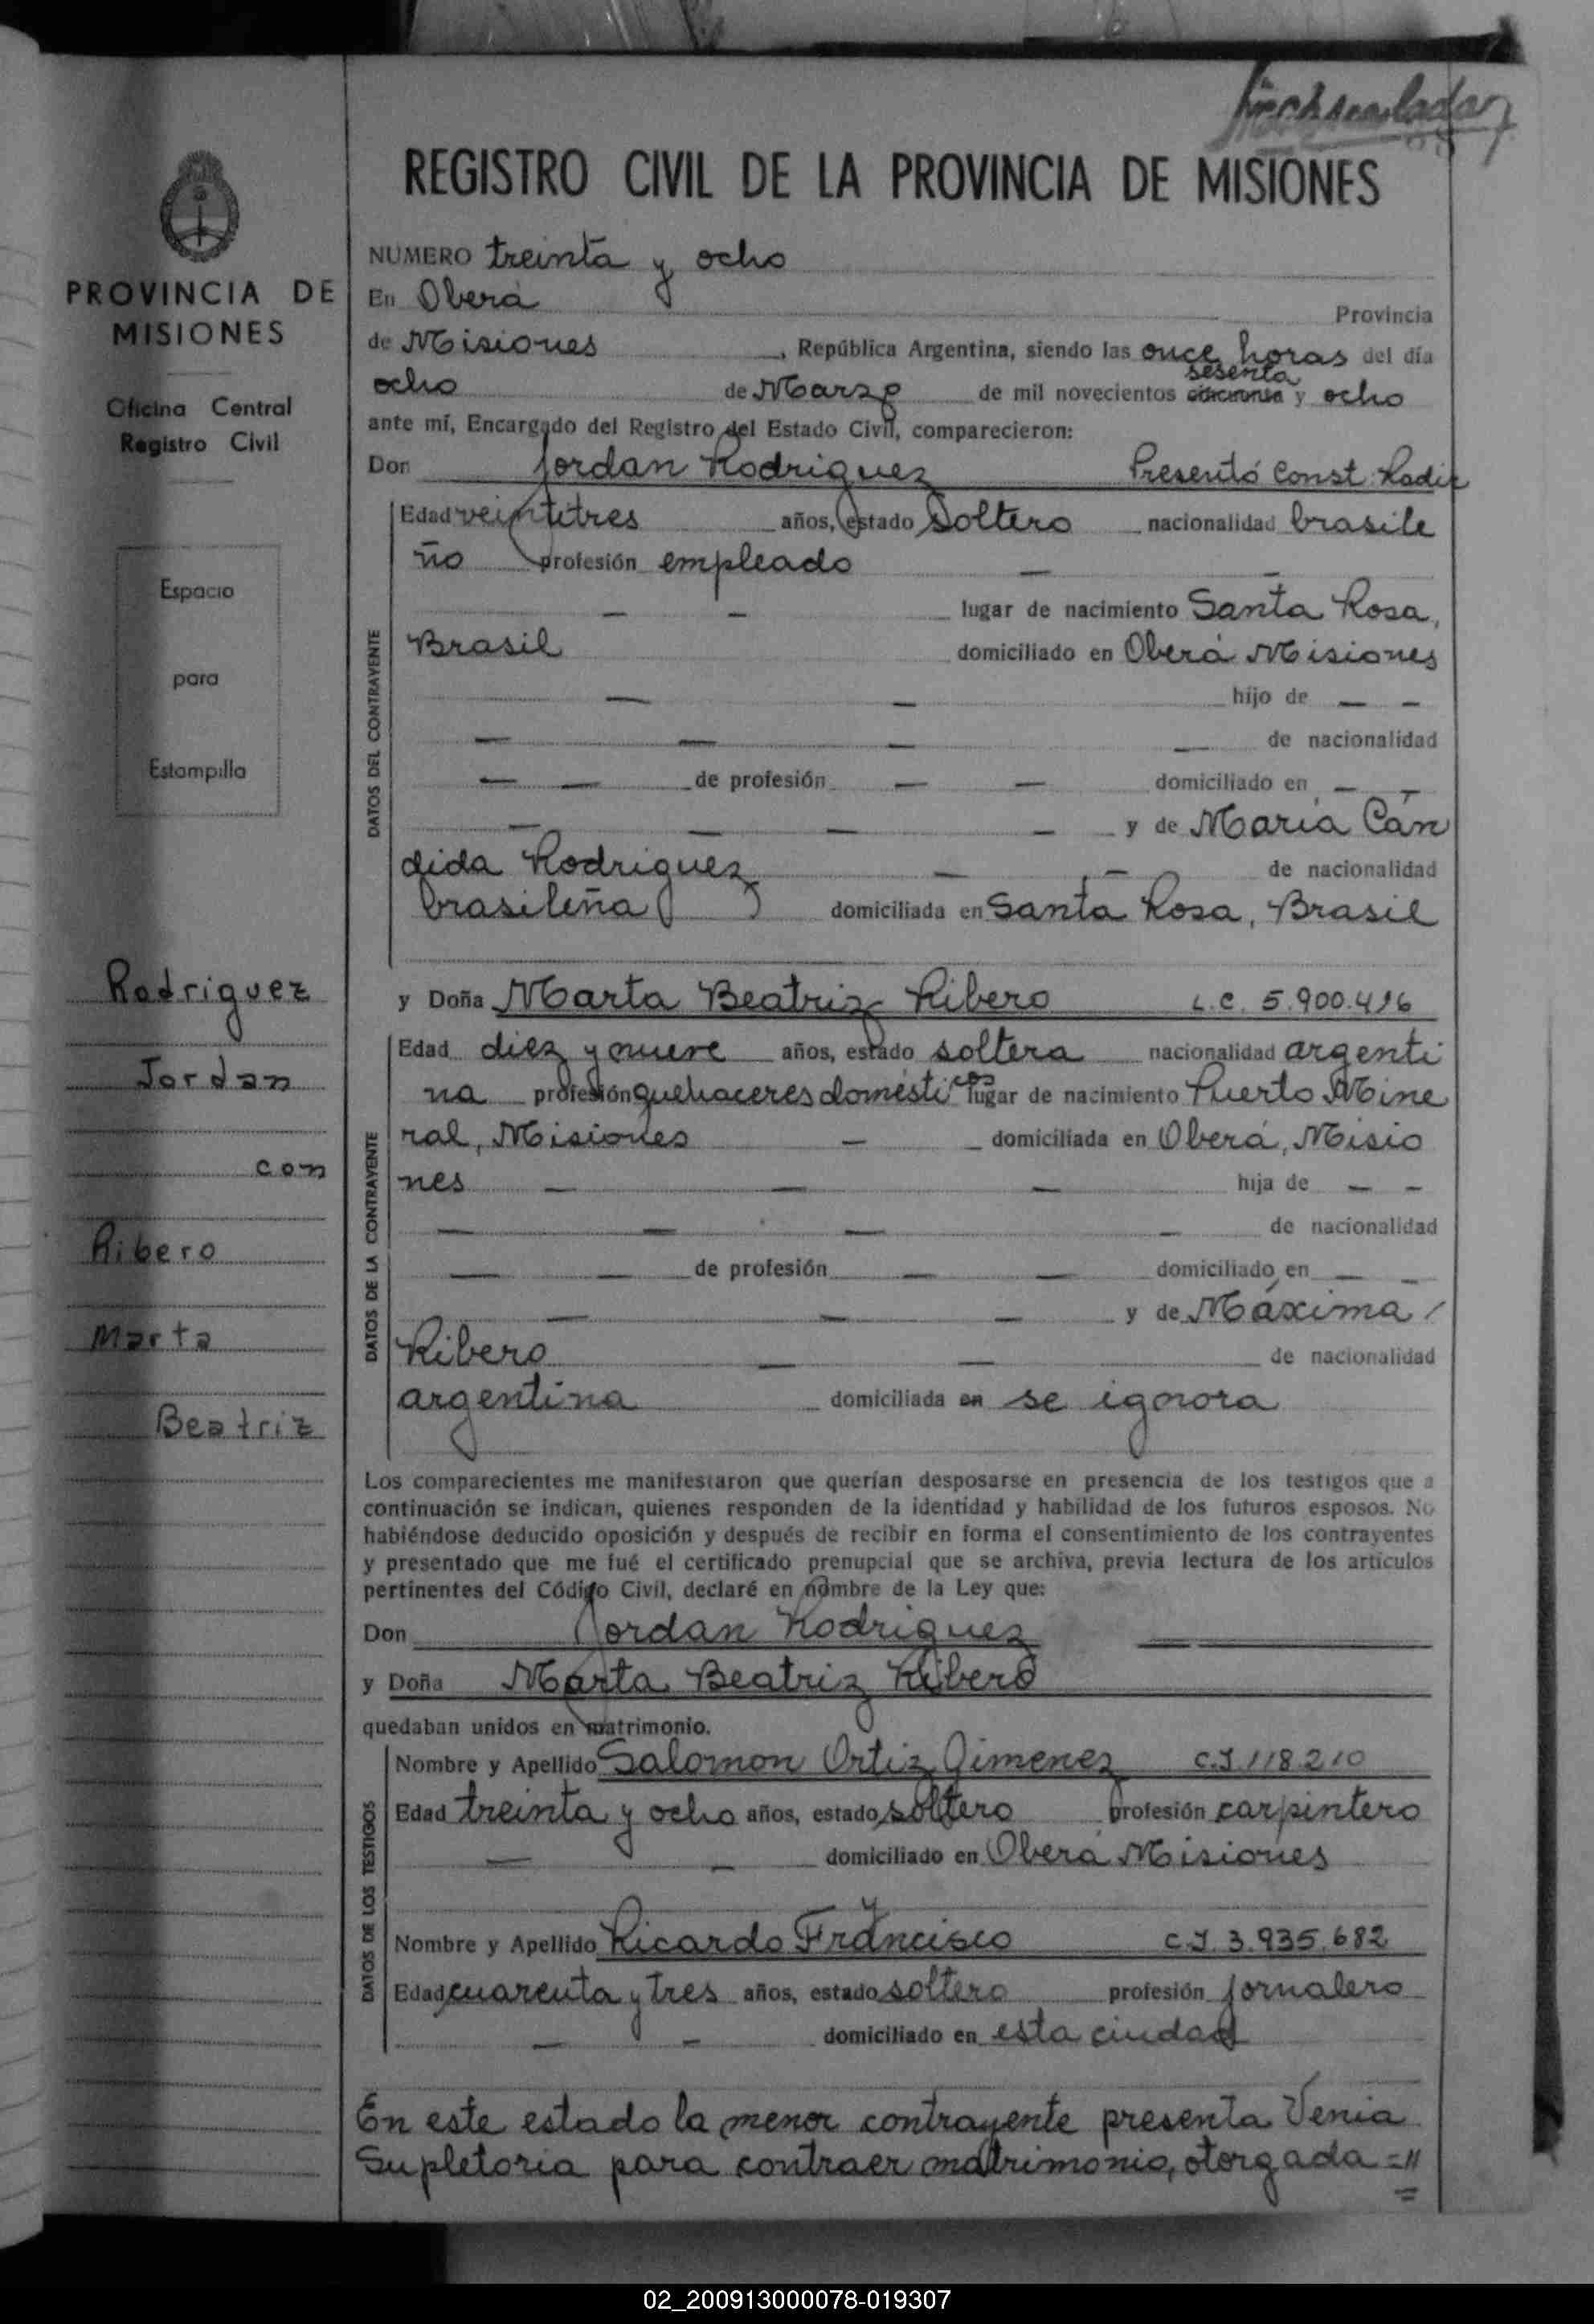 REGISTRO CIVIL DE LA PROVINCIA DE MISIONES
PROVINCIA DE
MISIONES
Oficina Central
Registro Civil
Espacio
para
Estampilla
Rodriguez
Jordan
con
Ribero
Marta
Beatriz
NUMERO treinta y ocho
En Oberá Provincia
de Misiones, República Argentina, siendo las once horas del día
sesenta
ocho de Marzo de mil novecientos cincuenta y ocho
ante mí, Encargado del Registro del Estado Civil, comparecieron:
Don Jordan Rodriguez Presentó Const. Radic
DATOS DEL CONTRAYENTE
Edad veintitres años, estado soltero nacionalidad brasile
ño profesión empleado — —
— — lugar de nacimiento Santa Rosa,
Brasil domiciliado en Oberá Misiones
— — hijo de — —
— — — — de nacionalidad
— — de profesión — — domiciliado en — —
— — — — y de María Cán
dida Rodriguez — — de nacionalidad
brasileña domiciliada en Santa Rosa, Brasil
y Doña Marta Beatriz Ribero L.C. 5.900.416
DATOS DE LA CONTRAYENTE
Edad diez y nueve años, estado soltera nacionalidad argenti
na profesión quehaceres domésticos lugar de nacimiento Puerto Mine
ral, Misiones — domiciliada en Oberá, Misio
nes — — — hija de — —
— — — — de nacionalidad
— — de profesión — — domiciliado en — —
— — — y de Máxima /
Ribero — — de nacionalidad
argentina domiciliada en se ignora
Los comparecientes me manifestaron que querían desposarse en presencia de los testigos que a
continuación se indican, quienes responden de la identidad y habilidad de los futuros esposos. No
habiéndose deducido oposición y después de recibir en forma el consentimiento de los contrayentes
y presentado que me fué el certificado prenupcial que se archiva, previa lectura de los artículos
pertinentes del Código Civil, declaré en nombre de la Ley que:
Don Jordan Rodriguez
y Doña Marta Beatriz Ribero
quedaban unidos en matrimonio.
DATOS DE LOS TESTIGOS
Nombre y Apellido Salomon Ortiz Gimenez C.I 118.210
Edad treinta y ocho años, estado soltero profesión carpintero
— — domiciliado en Oberá Misiones
Nombre y Apellido Ricardo Francisco C.I. 3.935.682
Edad cuarenta y tres años, estado soltero profesión jornalero
— — domiciliado en esta ciudad
En este estado la menor contrayente presenta Venia
Supletoria para contraer matrimonio, otorgada =//
=
02_200913000078-019307